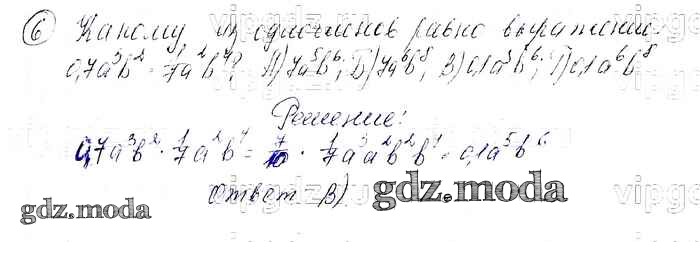 ⑥ Какому из одночленов равно выражение:
0,7a³b² · 1/7 a²b⁴? А) 7a⁵b⁶; Б) 7a⁶b⁸; В) 0,1a⁵b⁶; Г) 0,1a⁶b⁸
Решение:
0,7a³b² · 1/7 a²b⁴ = 7/10 · 1/7 a³a²b²b⁴ = 0,1a⁵b⁶
Ответ В)
gdz.moda gdz.moda